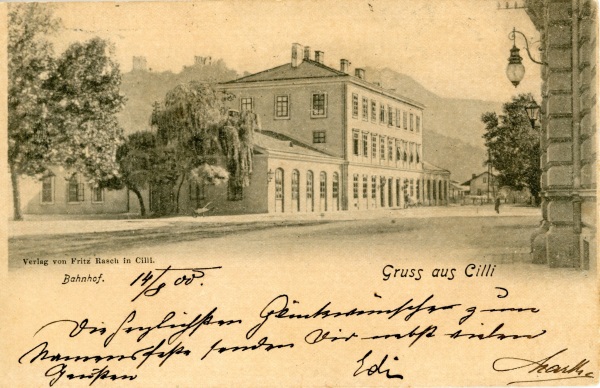 Verlag von Fritz Rasch in Cilli.
Bahnhof.
Gruss aus Cilli
14/8 00.
Die herzlichsten Glückwünsche zum
Namensfeste senden Dir nebst vielen
Grüßen Edi